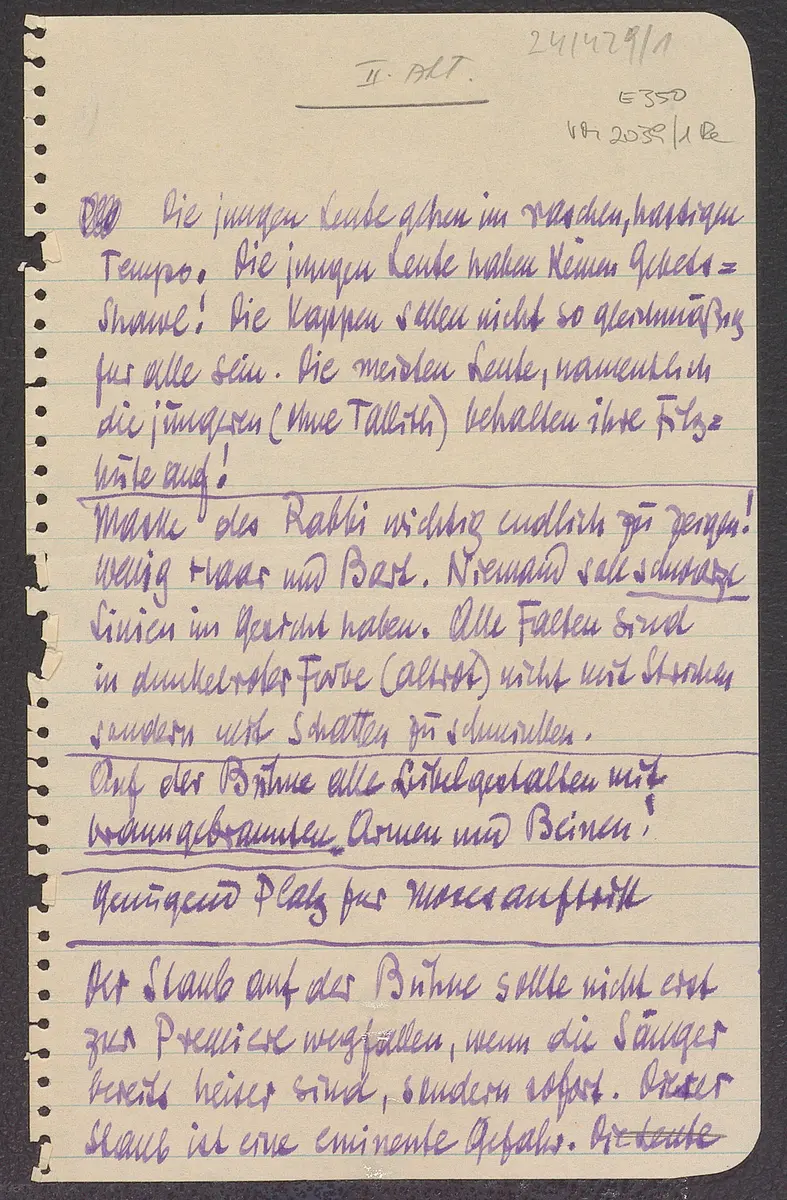 24/429/1
II. Akt.
E350
2039/1
Die jungen Leute gehen im raschen, hastigen
Tempo. Die jungen Leute haben keinen Gebets=
Shawl! Die Kappen sollen nicht so gleichmäßig
für alle sein. Die meisten Leute, namentlich
die jüngeren (ohne Tallith) behalten ihre Filz=
hüte auf!
Maske des Rabbi wichtig endlich zu zeigen!
Wenig Haar und Bart. Niemand soll schwarze
Linien im Gesicht haben. Alle Falten sind
in dunkelroter Farbe (altrot) nicht mit Strichen
sondern mit Schatten zu schminken.
Auf der Bühne alle Bibelgestalten mit
braungebrannten Armen und Beinen!
Genügend Platz für Mosesauftritt
Der Staub auf der Bühne sollte nicht erst
zur Premiere wegfallen, wenn die Sänger
bereits heiser sind, sondern sofort. Dieser
Staub ist eine eminente Gefahr. Die Leute